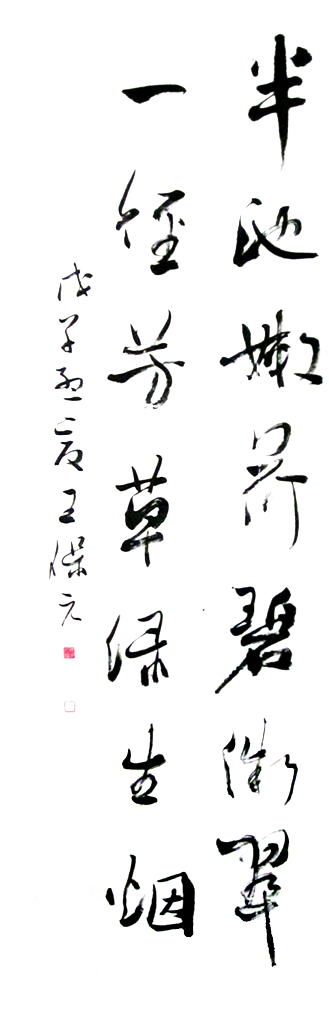 半池嫩荷碧衔翠
一径芳草绿生烟
戊子孟夏王保元